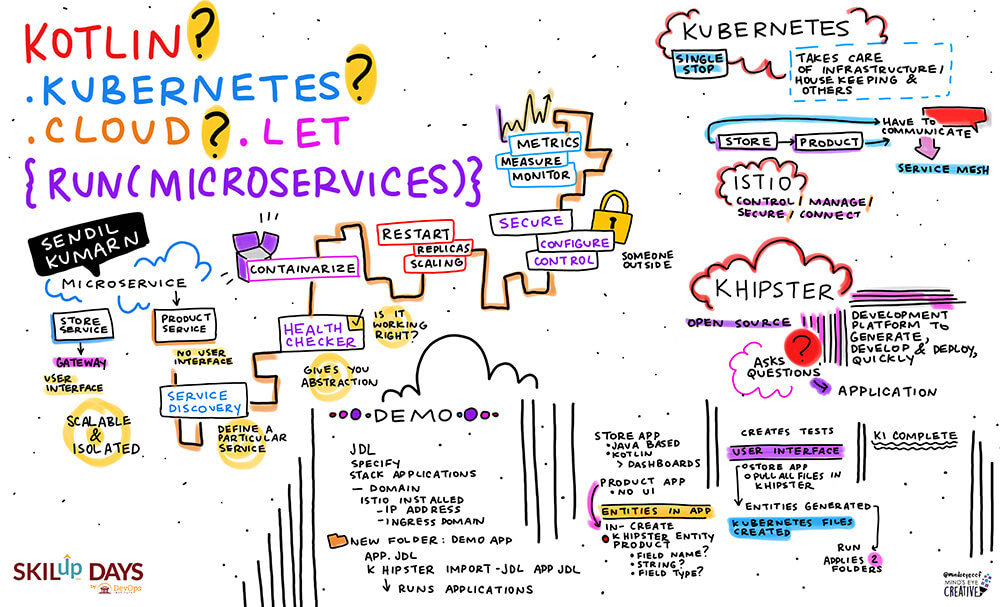 KOTLIN?
.KUBERNETES?
.CLOUD? .LET
{RUN(MICROSERVICES)}
SENDIL
KUMARN
MICROSERVICE
STORE
SERVICE
GATEWAY
USER
INTERFACE
SCALABLE
&
ISOLATED
PRODUCT
SERVICE
NO USER
INTERFACE
SERVICE
DISCOVERY
DEFINE A
PARTICULAR
SERVICE
HEALTH
CHECKER
IS IT
WORKING
RIGHT?
GIVES YOU
ABSTRACTION
CONTAINARIZE
RESTART
REPLICAS
SCALING
SECURE
CONFIGURE
CONTROL
SOMEONE
OUTSIDE
METRICS
MEASURE
MONITOR
KUBERNETES
SINGLE
STOP
TAKES CARE
OF INFRASTRUCTURE/
HOUSE KEEPING &
OTHERS
STORE
PRODUCT
HAVE TO
COMMUNICATE
SERVICE MESH
ISTIO
CONTROL/ MANAGE/
SECURE/ CONNECT
KHIPSTER
OPEN SOURCE
DEVELOPMENT
PLATFORM TO
GENERATE,
DEVELOP & DEPLOY,
QUICKLY
?
ASKS
QUESTIONS
APPLICATION
DEMO
JDL
SPECIFY
STACK APPLICATIONS
- DOMAIN
ISTIO INSTALLED
- IP ADDRESS
- INGRESS DOMAIN
NEW FOLDER: DEMO APP
APP.JDL
K HIPSTER IMPORT-JDL APP JDL
RUNS APPLICATIONS
STORE APP
• JAVA BASED
• KOTLIN
> DASHBOARDS
PRODUCT APP
• NO UI
ENTITIES IN APP
IN- CREATE
K HIPSTER ENTITY
PRODUCT
• FIELD NAME?
• STRING?
• FIELD TYPE?
CREATES TESTS
USER INTERFACE
STORE APP
PULL ALL FILES IN
KHIPSTER
ENTITIES GENERATED
KUBERNETES FILES
CREATED
RUN
APPLIES 2
FOLDERS
KI COMPLETE
SKILup DAYS
by DevOps
INSTITUTE
@mindseyeccf
MIND'S EYE
CREATIVE